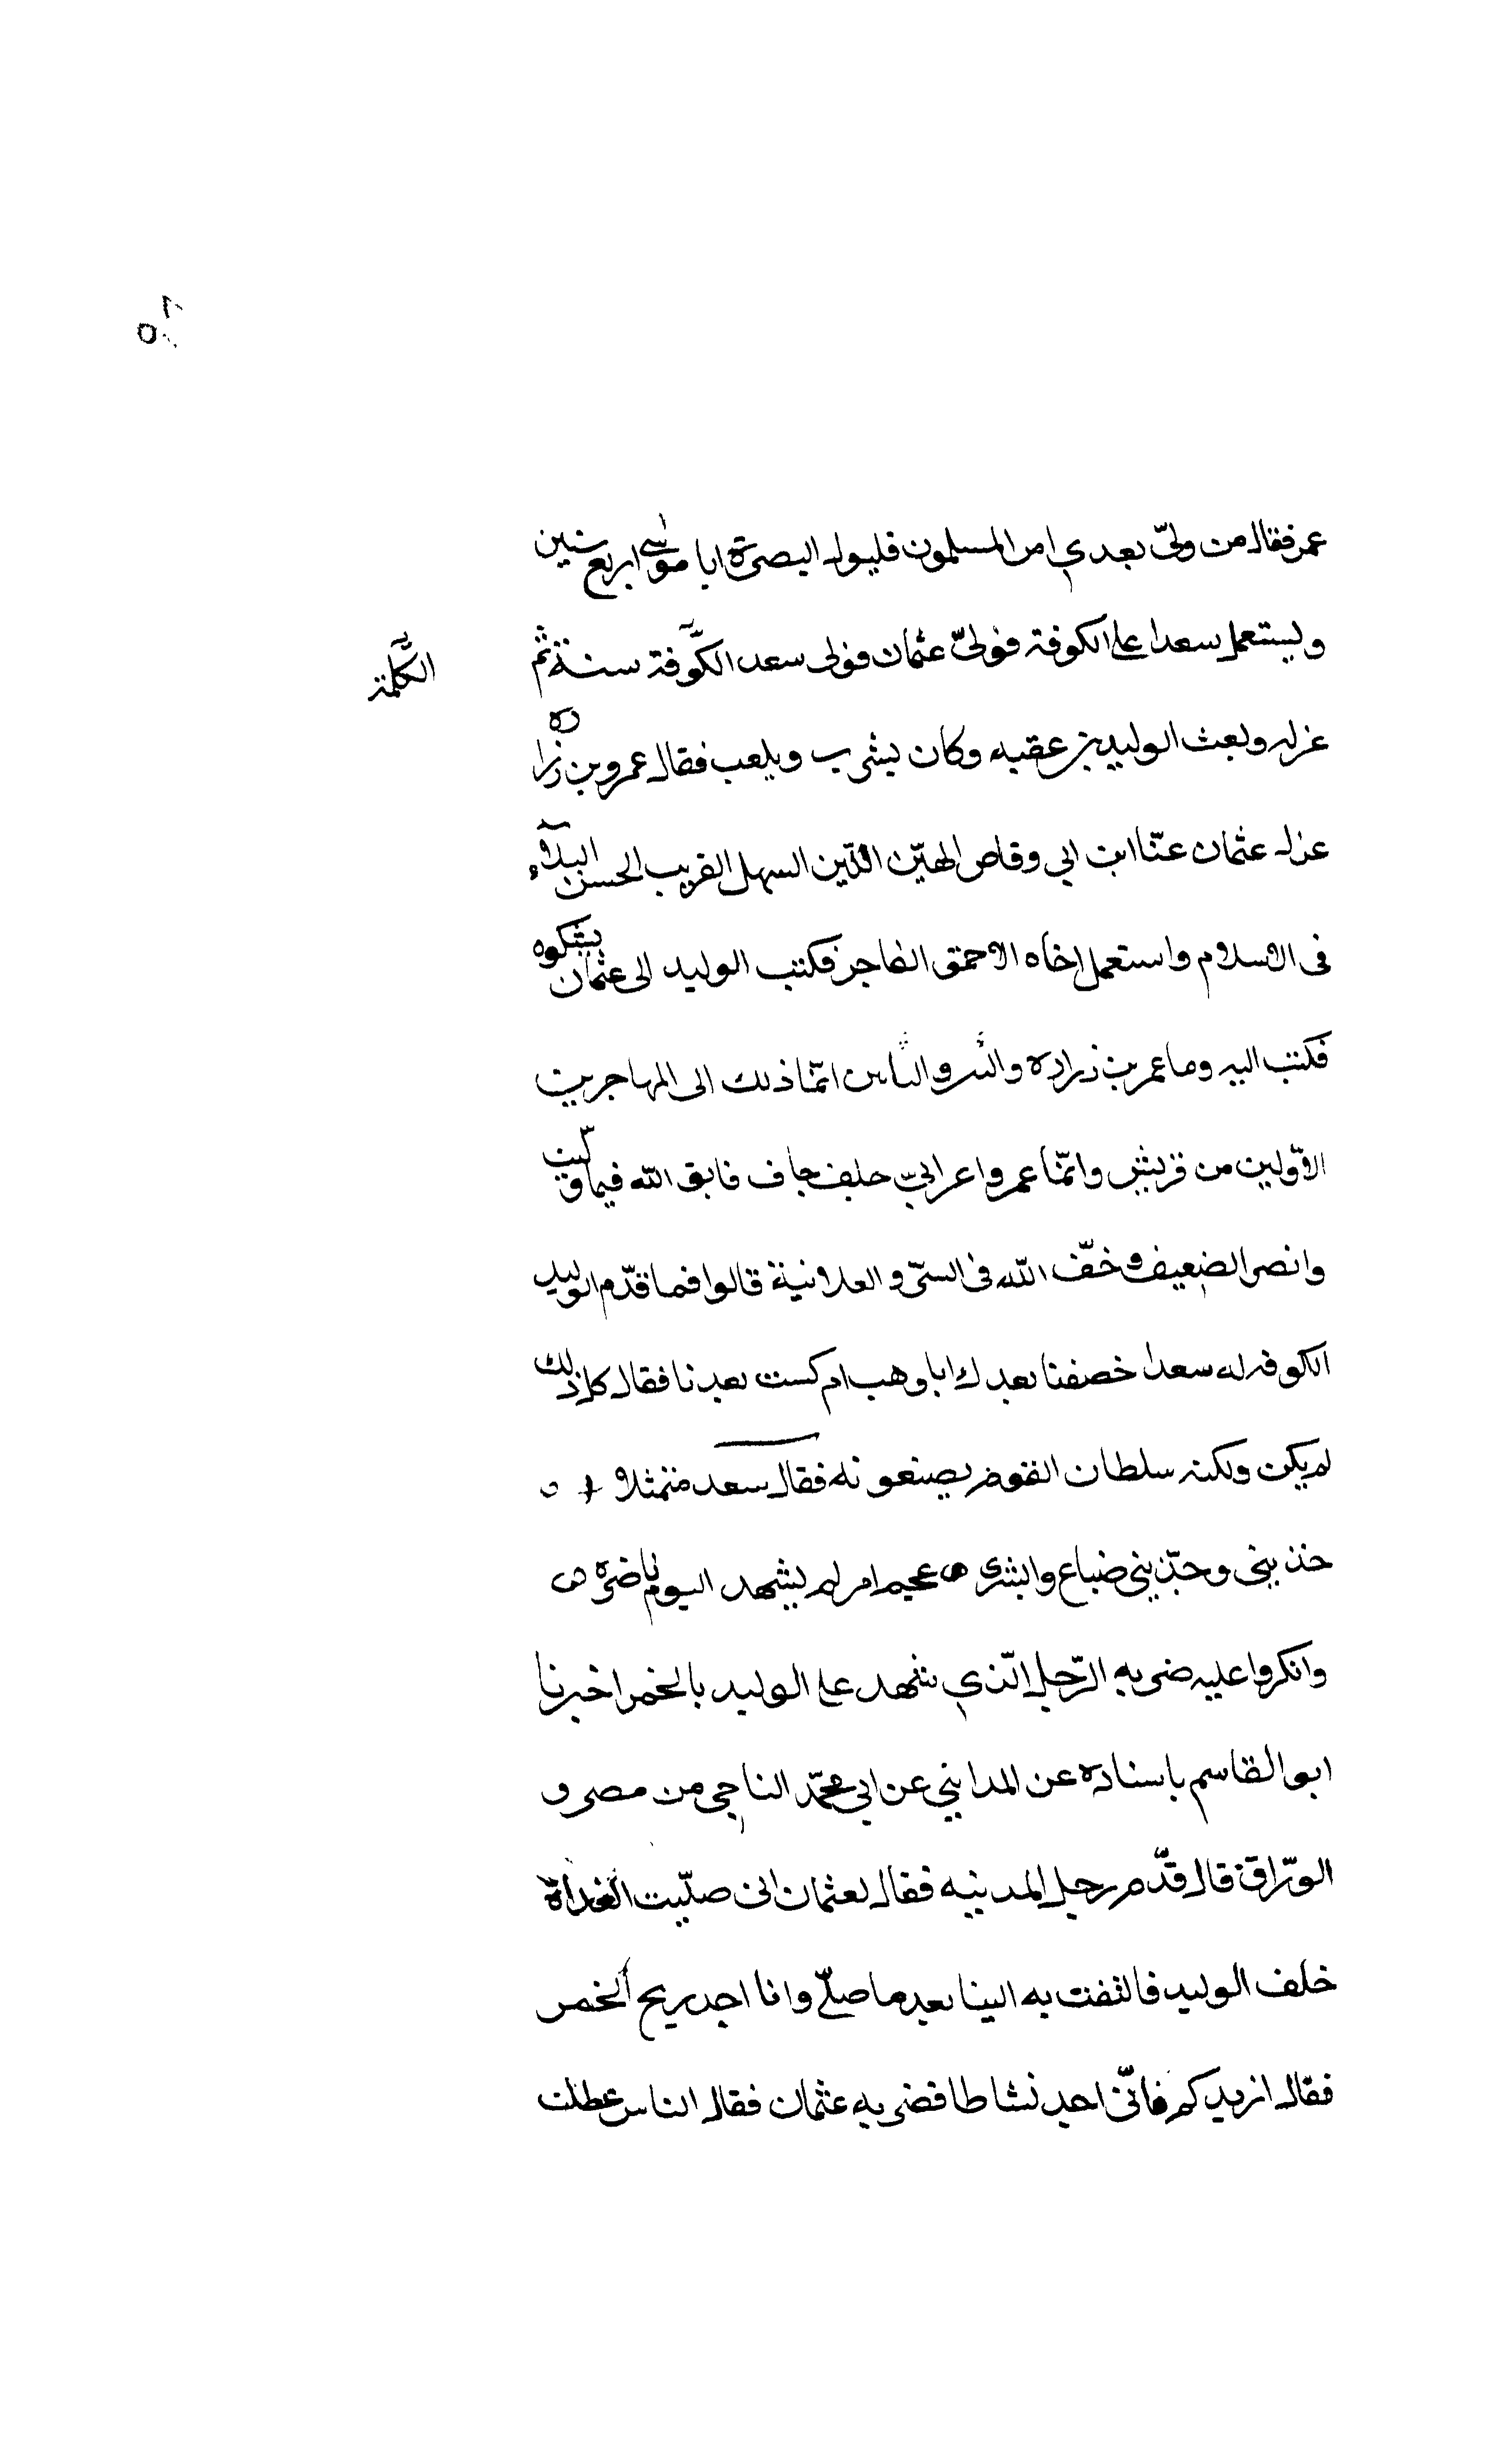 عمر فقال من ولىّ بعدي امر المسلمون فليول البصرة ابا موسى اربع سنين
وليستعمل سعدا على الكوفة فولىّ عثمان فولى سعد الكوفة سنة ثم
الكلمة
عزله وبعث الوليد بن عقبه وكان يشرب ويلعب فقال عمرو بن زراره
عزل عثمان عنّا ابن ابي وقاص الهيّن اللّين السهل القريب الحسن البلاء
فى الاسلام واستعمل اخاه الاحمق الفاجر فكتب الوليد الى عثمان يشكوه
فكتب اليه وما عمر بن زراره والنّس والنّاس انّما ذلك الى المهاجرين
الاوّلين من قريش وانّما عمرو اعرابيّ جلف جاف فابق الله فيما ولّيت
وانصر الضعيف وخف الله فى السّر والعلانية قالوا فما قدّم الوليد
الكوفه له سعدا خصفنا بعدك ابا وهب ام كست بعدنا فقال كل ذلك
لم يكن ولكنه سلطان القوم يصنعونه فقال سعد متمثلا
خذيني وجرّيني ضباع وابشرى عجيم امر لم يشهد اليوم ناضرة
وانكروا عليه ضربه الرّجل الّذي شهد على الوليد بالخمر اخبرنا
ابو القاسم باسناده عن المدايني عن ابي محمّد الناجى من مصرو
الورّاق قال قدّم رجل المدينه فقال لعثمان انى صلّيت الغداة
خلف الوليد فالتفت به الينا بعد ما صلّى وانا اجد ريح الخمر
فقال ازيدكم فانّى اجد نشاطا فضربه عثمان فقال الناس عطلت